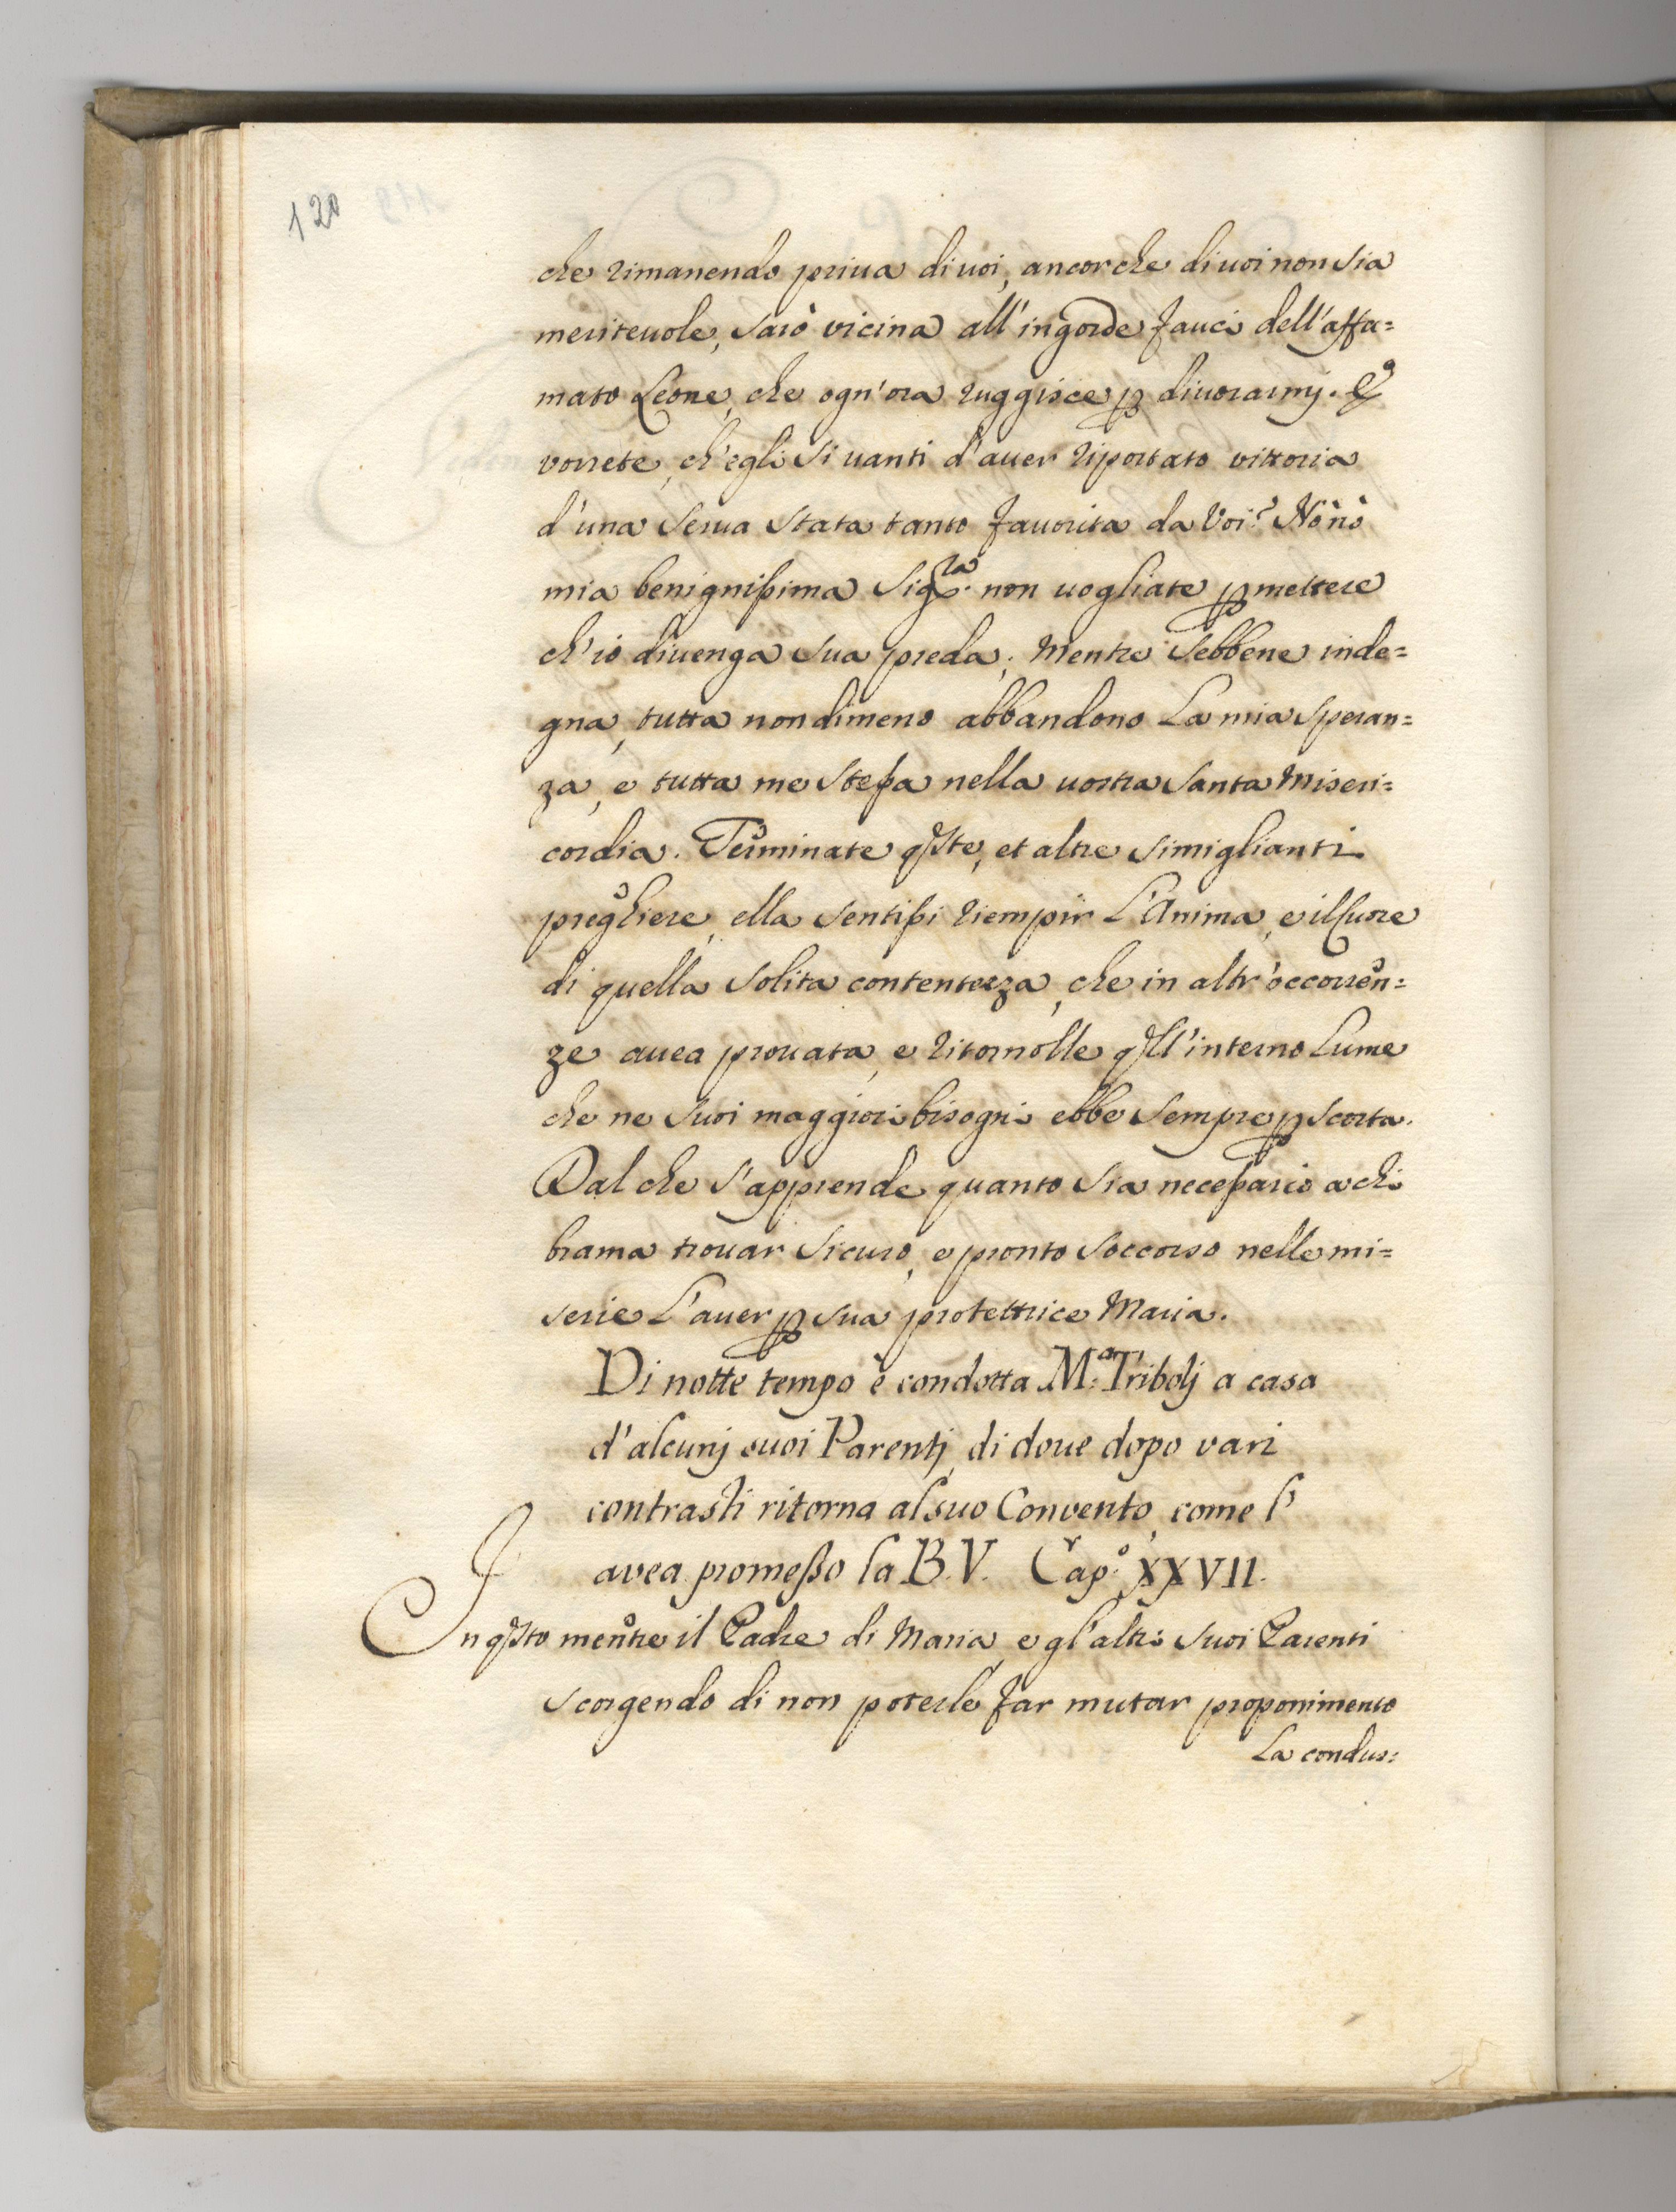 120
che rimanendo priua di uoi, ancorche di uoi non sia
meriteuole, sarò vicina all'ingorde fauci dell'affa=
mato Leone, che ogn'ora ruggisce p diuorarmj. E
vorrete, ch'egli si uanti d'auer riportato vittoria
d'una serua stata tanto fauorita da Voi? Nò nò
mia benignissima Sig.ra non uogliate pmettere
ch'io diuenga sua preda; Mentre sebbene inde=
gna, tutta nondimeno abbandono La mia speran=
za, e tutta me stessa nella uostra Santa Miseri=
cordia. Terminate qste, et altre simiglianti
preghiere, ella sentissi riempir L'Anima, e il Cuore
di quella solita contentezza, che in altr'occorren=
ze auea prouata, e ritornolle qll'interno Lume
che ne suoi maggiori bisogni ebbe sempre p scorta.
Dal che s'apprende quanto sia necessario a chi
brama trouar sicuro, e pronto soccorso nelle mi=
serie L'auer p sua protettrice Maria.
Di notte tempo è condotta M.a Tribolj a casa
d'alcunj suoi Parentj, di doue dopo vari
contrasti ritorna al suo Convento, come l'
avea promesso la B. V. Cap.o XXVII.
In qsto mentre il Padre di Maria, e gl'altri suoi Parenti
scorgendo di non poterle far mutar proponimento
La condus=